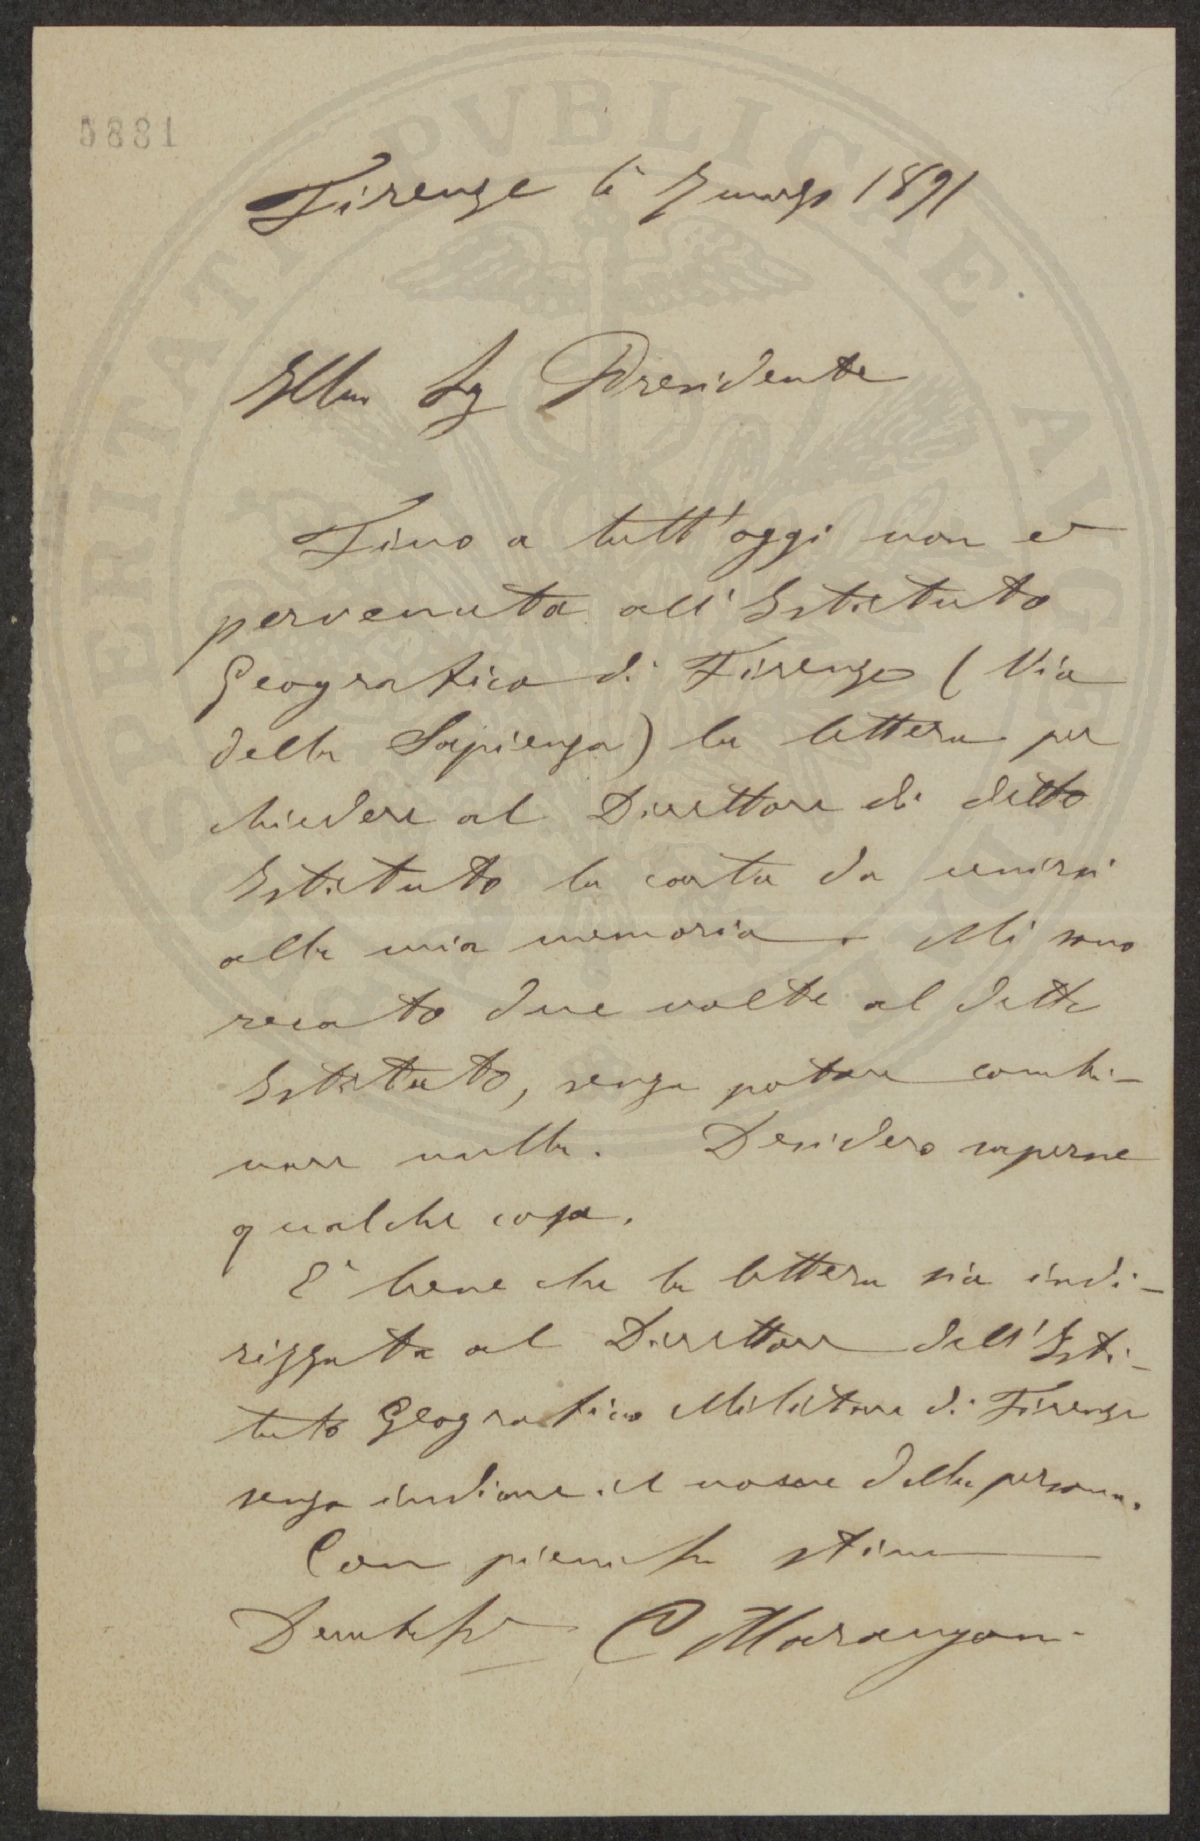 5881
Firenze li 7 marzo 1891
Illmo Sg Presidente
Fino a tutt'oggi non è
pervenuta all'Istituto
Geografico di Firenze (Via
della Sapienza) la lettera per
chiedere al Direttore di detto
Istituto la carta da unirsi
alla mia memoria. Mi sono
recato due volte al detto
Istituto, senza potere combi-
nare nulla. Desidero saperne
qualche cosa.
E' bene che la lettera sia indi-
rizzata al Direttore dell'Isti-
tuto Geografico Militare di Firenze
senza indicare il nome della persona.
Con pienissa stima
Devotisso C Marangoni